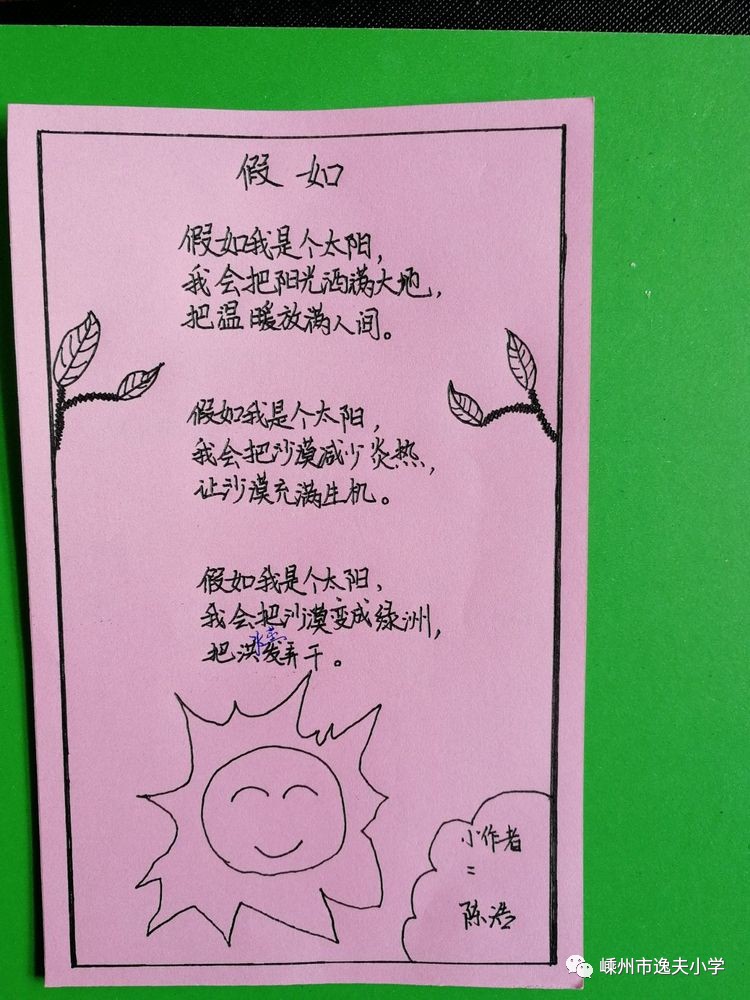 假如
假如我是个太阳，
我会把阳光洒满大地，
把温暖放满人间。
假如我是个太阳，
我会把沙漠减少炎热，
让沙漠充满生机。
假如我是个太阳，
我会把沙漠变成绿洲，
把洪水蒸发弄干。
小作者
：
陈浩
嵊州市逸夫小学